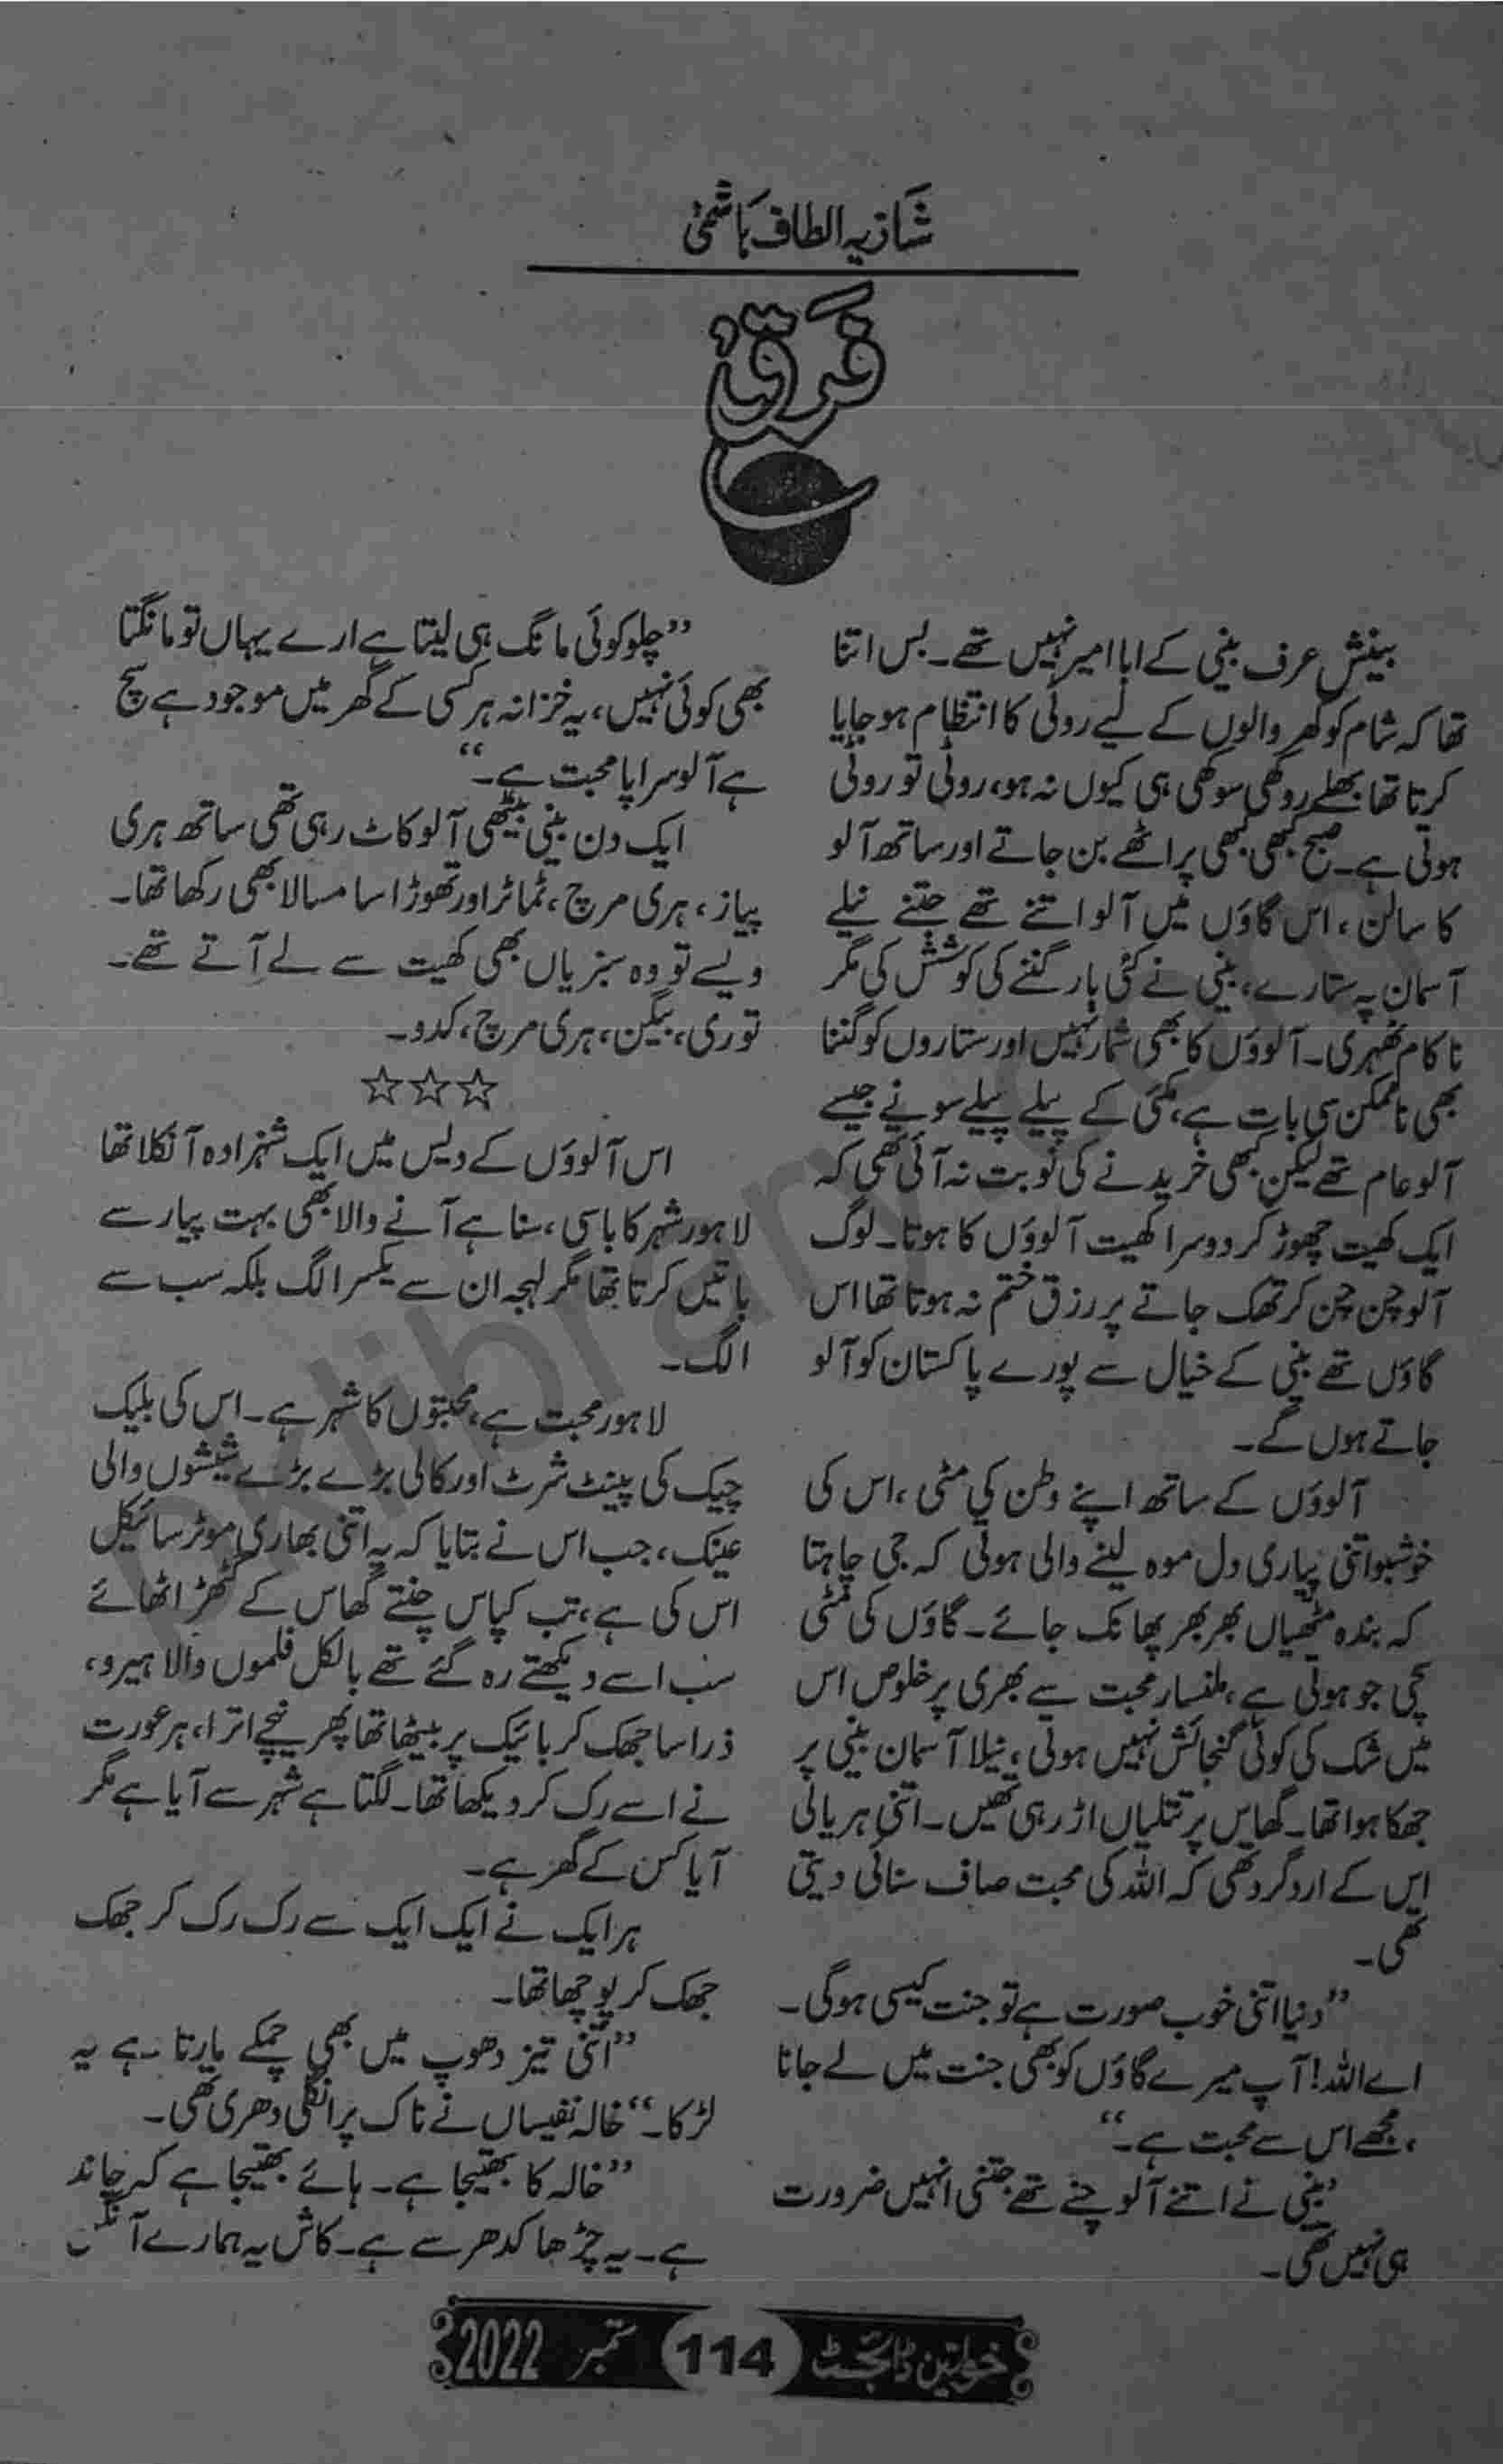 شازیہ الطاف ہاشمی
فرق
بینش عرف بینی کے ابا امیر نہیں تھے۔ بس اتنا
تھا کہ شام کو گھر والوں کے لیے روٹی کا انتظام ہو جایا
کرتا تھا بھلے روکھی سوکھی ہی کیوں نہ ہو، روٹی تو روٹی
ہوتی ہے۔ صبح کبھی کبھی پراٹھے بن جاتے اور ساتھ آلو
کا سالن، اس گاؤں میں آلو اتنے تھے جتنے نیلے
آسمان پہ ستارے، بینی نے کئی بار گننے کی کوشش کی مگر
ناکام ٹھہری۔ آلوؤں کا بھی شمار نہیں اور ستاروں کو گننا
بھی ناممکن سی بات ہے، مکئی کے پیلے پیلے سونے جیسے
آلو عام تھے لیکن کبھی خریدنے کی نوبت نہ آئی تھی کہ
ایک کھیت چھوڑ کر دوسرا کھیت آلوؤں کا ہوتا۔ لوگ
آلو چن چن کر تھک جاتے پر رزق ختم نہ ہوتا تھا اس
گاؤں تھے بینی کے خیال سے پورے پاکستان کو آلو
جاتے ہوں گے۔
آلوؤں کے ساتھ اپنے وطن کی مٹی، اس کی
خوشبو اتنی پیاری دل موہ لینے والی ہوتی کہ جی چاہتا
کہ بندہ مٹھیاں بھر بھر پھانک جائے۔ گاؤں کی مٹی
سچی جو ہوتی ہے، ملنسار محبت سے بھری پر خلوص اس
میں شک کی کوئی گنجائش نہیں ہوتی، نیلا آسمان بینی پر
جھکا ہوا تھا۔ گھاس پر تتلیاں اڑ رہی تھیں۔ اتنی ہریالی
اس کے اردگرد تھی کہ اللہ کی محبت صاف سنائی دیتی
تھی۔
”دنیا اتنی خوب صورت ہے تو جنت کیسی ہوگی۔
اے اللہ! آپ میرے گاؤں کو بھی جنت میں لے جانا
، مجھے اس سے محبت ہے۔“
بینی نے اتنے آلو چنے تھے جتنی انہیں ضرورت
ہی نہیں تھی۔
”چلو کوئی مانگ ہی لیتا ہے ارے یہاں تو مانگتا
بھی کوئی نہیں، یہ خزانہ ہر کسی کے گھر میں موجود ہے سچ
ہے آلو سراپا محبت ہے۔“
ایک دن بینی بیٹھی آلو کاٹ رہی تھی ساتھ ہری
پیاز، ہری مرچ، ٹماٹر اور تھوڑا سا مسالا بھی رکھا تھا۔
ویسے تو وہ سبزیاں بھی کھیت سے لے آتے تھے۔
توری، بیگن، ہری مرچ، کدو۔
☆☆☆
اس آلوؤں کے دیس میں ایک شہزادہ آ نکلا تھا
لاہور شہر کا باسی، سنا ہے آنے والا بھی بہت پیار سے
باتیں کرتا تھا مگر لہجہ ان سے یکسر الگ بلکہ سب سے
الگ۔
لاہور محبت ہے، محبتوں کا شہر ہے۔ اس کی بلیک
چیک کی پینٹ شرٹ اور کالی بڑے بڑے شیشوں والی
عینک، جب اس نے بتایا کہ یہ اتنی بھاری موٹر سائیکل
اس کی ہے، تب کپاس چنتے گھاس کے گٹھڑ اٹھائے
سب اسے دیکھتے رہ گئے تھے بالکل فلموں والا ہیرو،
ذرا سا جھک کر بائیک پر بیٹھا تھا پھر نیچے اترا، ہر عورت
نے اسے رک کر دیکھا تھا۔ لگتا ہے شہر سے آیا ہے مگر
آیا کس کے گھر ہے۔
ہر ایک نے ایک ایک سے رک رک کر جھک
جھک کر پوچھا تھا۔
”اتنی تیز دھوپ میں بھی چمکے مارتا ہے یہ
لڑکا۔“ خالہ نفیساں نے ناک پر انگلی دھری تھی۔
”خالہ کا بھتیجا ہے۔ ہائے بھتیجا ہے کہ چاند
ہے۔ یہ چڑھا کدھر سے ہے۔ کاش یہ ہمارے آنگن
خواتین ڈائجسٹ 114 ستمبر 2022
pklibrary.com